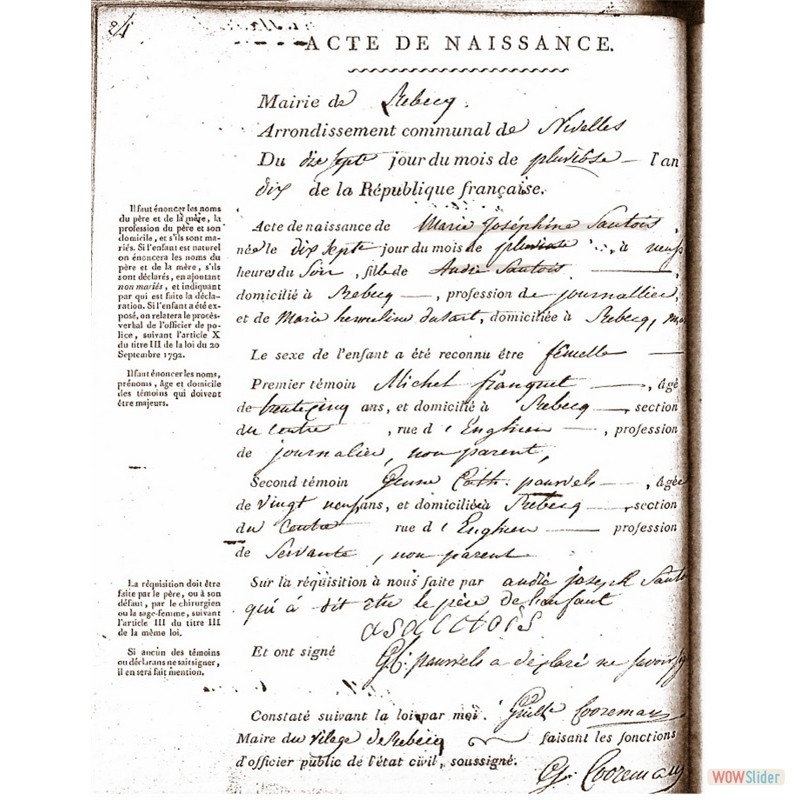 24
ACTE DE NAISSANCE.
Mairie de Rebecq.
Arrondissement communal de Nivelles
Du dix sept jour du mois de pluviôse — l'an
dix de la République française.
Il faut énoncer les noms
du père et de la mère, la
profession du père et son
domicile, et s'ils sont ma-
riés. Si l'enfant est naturel
on énoncera les noms du
père et de la mère, s'ils
sont déclarés, en ajoutant
non mariés, et indiquant
par qui est faite la décla-
ration. Si l'enfant a été ex-
posé, on relatera le procès-
verbal de l'officier de po-
lice, suivant l'article X
du titre III de la loi du 20
Septembre 1792.
Il faut énoncer les noms,
prénoms, âge et domicile
des témoins qui doivent
être majeurs.
Acte de naissance de Marie Joséphine Sautois,
née le dix sept jour du mois de pluviose, à neuf
heures du Soir, fille de Sautois —
domicilié à Rebecq —, profession de journallier,
et de Marie dusart, domiciliée à Rebecq,
Le sexe de l'enfant a été reconnu être femelle —
Premier témoin Michel franquet —, âgé
de trente cinq ans, et domicilié à Rebecq —, section
du centre, rue d'Enghien —, profession
de journalier, non parent,
Second témoin Cath. pauwels —, âgée
de vingt neuf ans, et domiciliée à Rebecq —, section
du Centre rue d'Enghien — profession
de Servante, non parent
La réquisition doit être
faite par le père, ou à son
défaut, par le chirurgien
ou la sage-femme, suivant
l'article III du titre III
de la même loi.
Sur la réquisition à nous faite par joseph
qui à dit etre le père de l'enfant
Si aucun des témoins
ou déclarans ne sait signer,
il en sera fait mention.
Et ont signé pauwels a déclaré ne savoir
Constaté suivant la loi par moi. Cooremans
Maire du vilage de Rebecq faisant les fonctions
d'officier public de l'état civil, soussigné.
Cooremans
WOWSlider